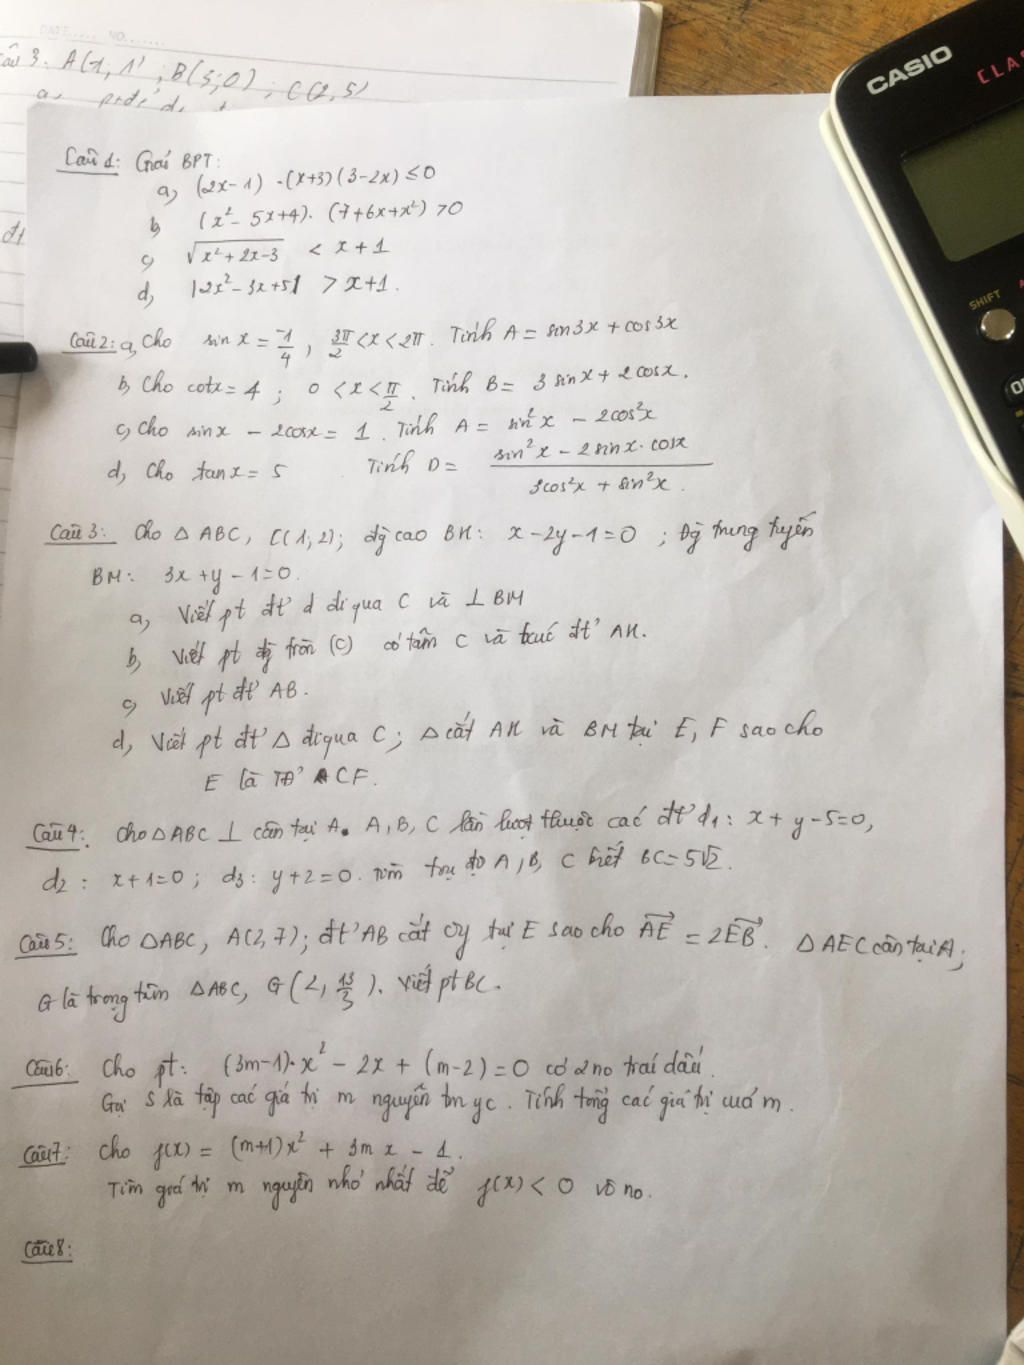 DATE..... NO.......
Câu 3. A(1; 1) ; B(3;0) ; C(2,5)
Câu 1: Giải BPT:
a, (2x-1) ·(x+3)(3-2x) ≤0
b, (x²- 5x+4)· (7+6x+x²) >0
c, √x²+2x-3 < x+1
d, |2x²-3x+5| > x+1.
Câu 2: a, Cho sin x = -1/4 , 3π/2 <x<2π. Tính A = sin3x + cos3x
b, Cho cotx = 4 ; 0 <x< π/2. Tính B = 3 sinx + 2cosx.
c, Cho sinx - 2cosx = 1. Tính A = sin²x - 2cos²x
d, Cho tanx = 5 Tính D = sin²x - 2sinx.cosx / 3cos²x + sin²x.
Câu 3: Cho △ABC, C(1;2); đg cao BH: x-2y-1=0 ; Đg trung tuyến
BM: 3x+y-1=0.
a, Viết pt đt' d đi qua C và ⊥ BM
b, Viết pt đg tròn (C) có tâm C và txúc đt' AH.
c, Viết pt đt' AB.
d, Viết pt đt' Δ đi qua C; Δ cắt AH và BM tại E, F sao cho
E là TĐ' CF.
Câu 4: Cho △ABC ⊥ cân tại A. A, B, C lần lượt thuộc các đt' d1: x+y-5=0,
d2 : x+1=0 ; d3: y+2=0. Tìm toạ độ A, B, C biết BC=5√2.
Câu 5: Cho △ABC, A(2,7); đt' AB cắt Oy tại E sao cho AE→ = 2EB→. △AEC cân tại A;
G là trọng tâm △ABC, G(2, 13/3). Viết pt BC.
Câu 6: Cho pt: (3m-1)·x² - 2x + (m-2) = 0 có 2no trái dấu.
Gọi S là tập các giá trị m nguyên tm yc. Tính tổng các giá trị của m.
Câu 7: Cho f(x) = (m+1)x² + 3m x - 1.
Tìm giá trị m nguyên nhỏ nhất để f(x) < 0 vô no.
Câu 8:
CASIO
SHIFT